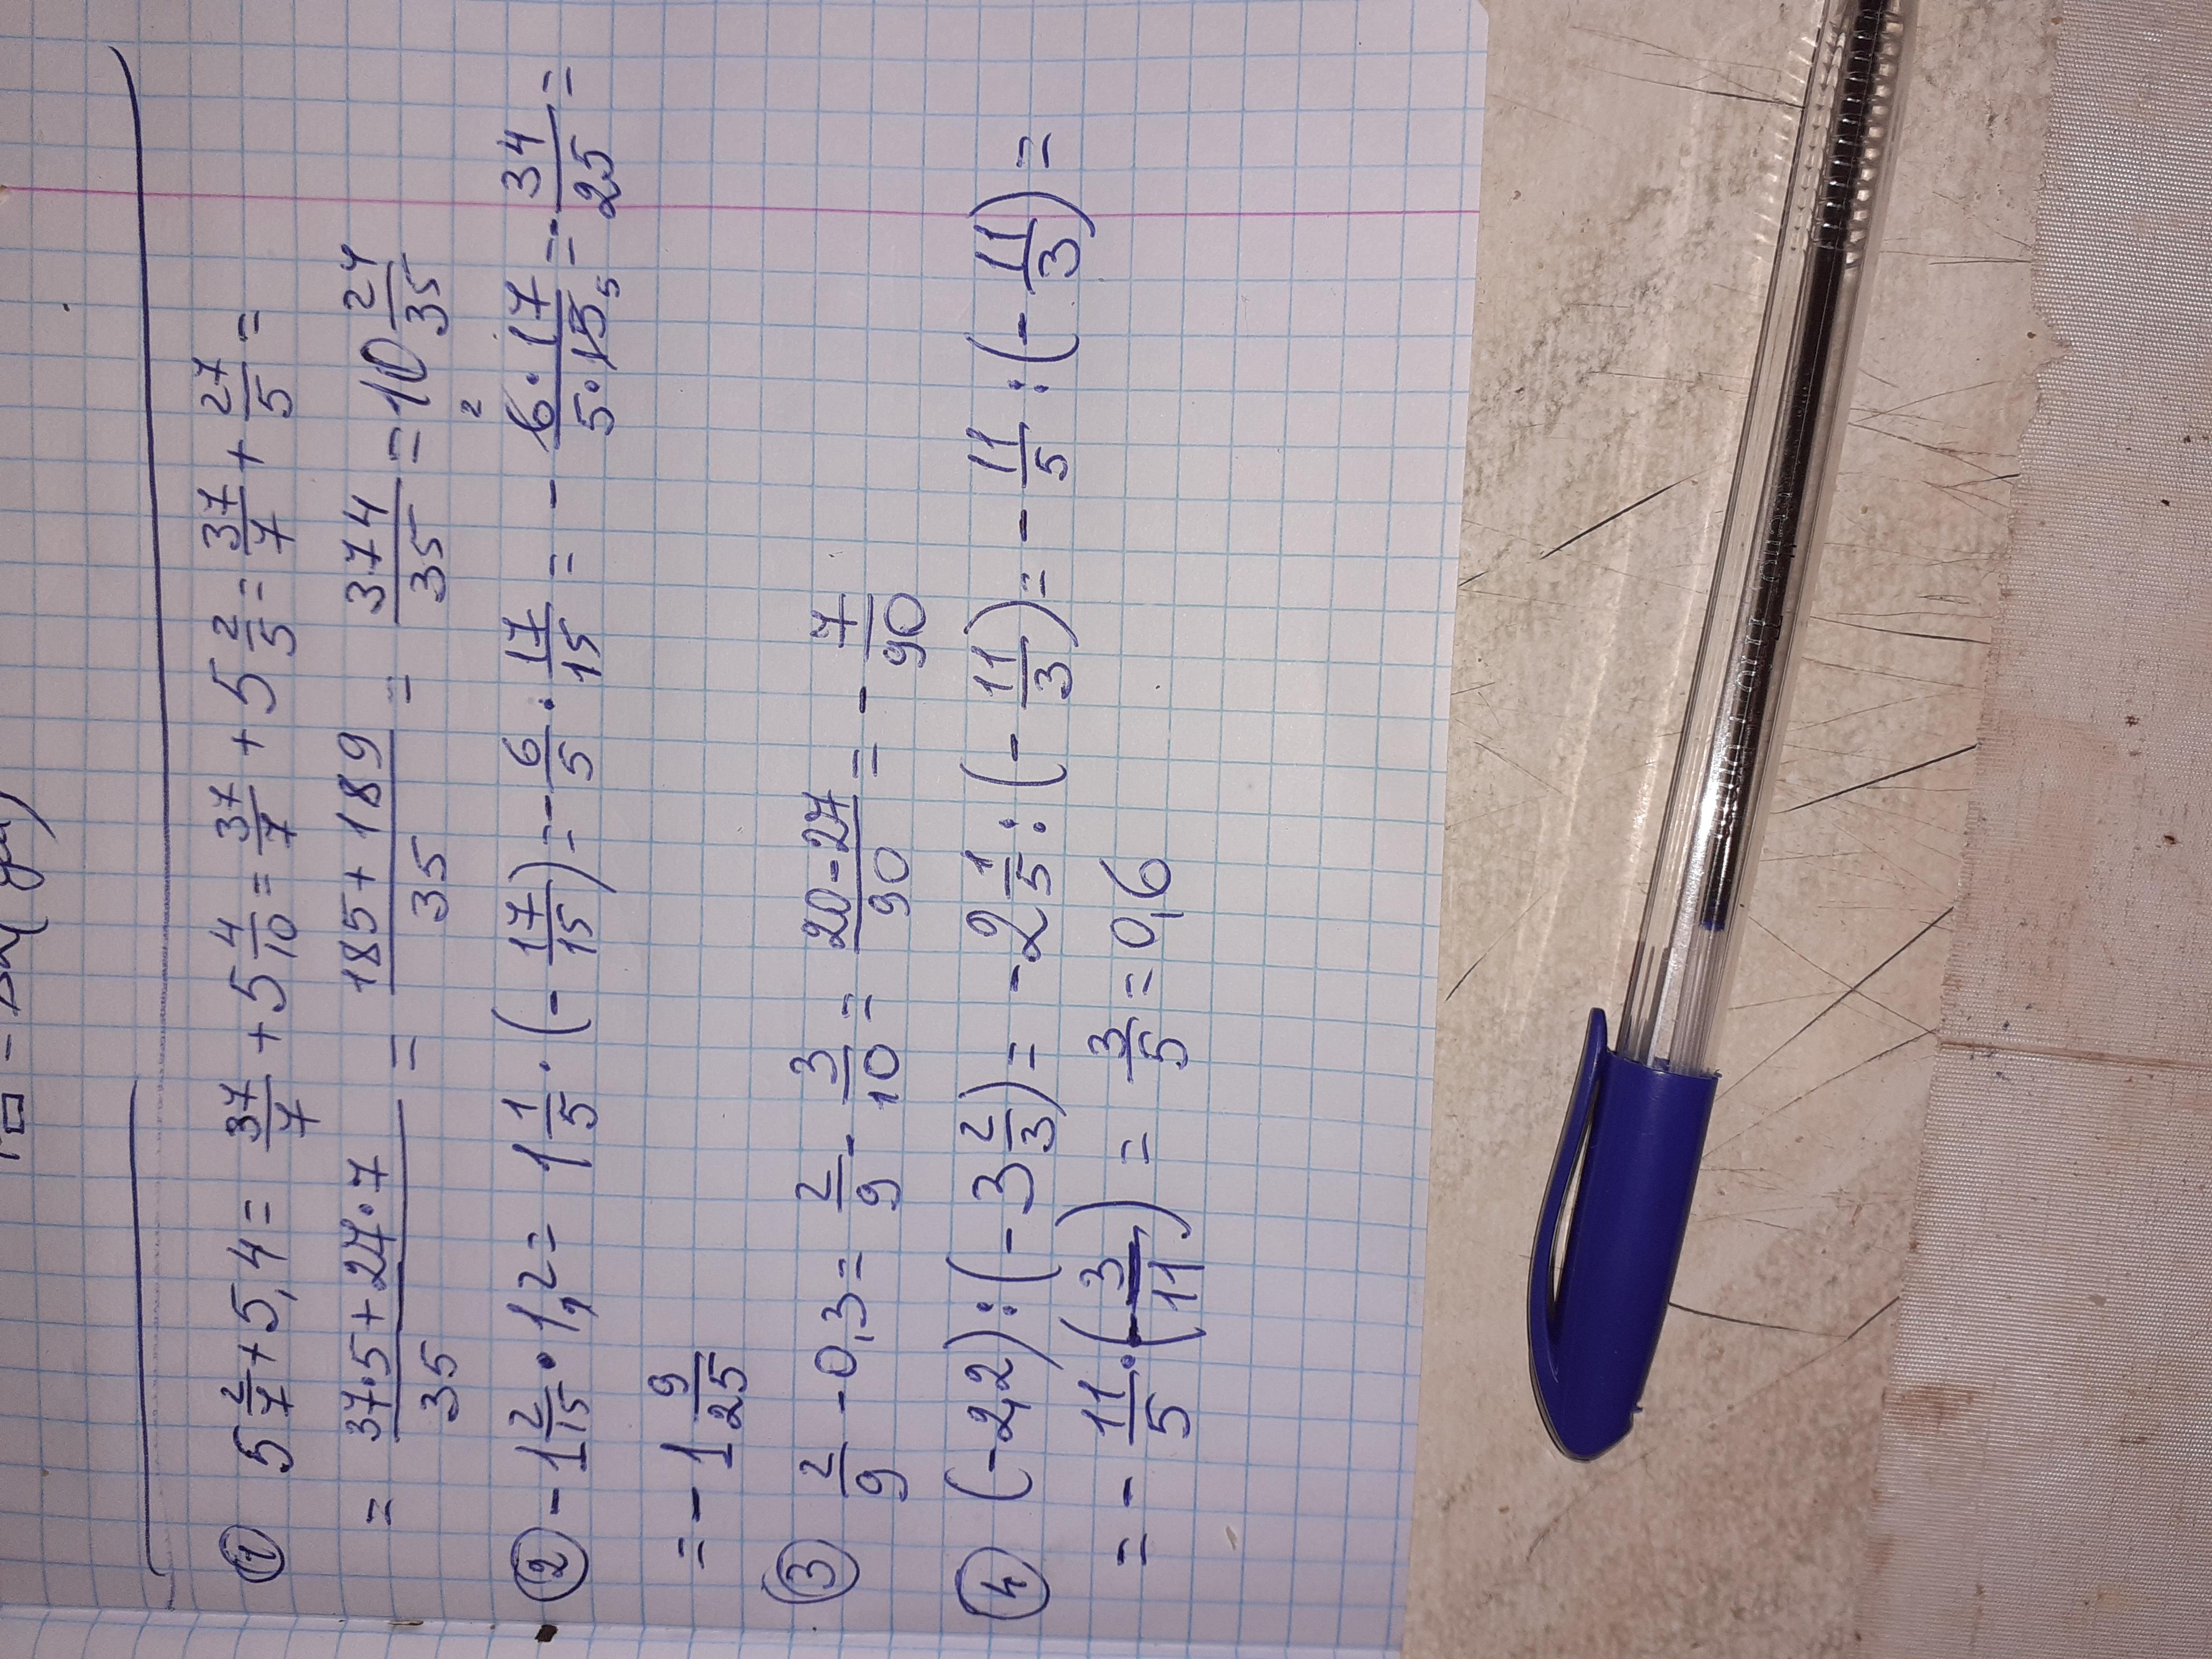 ① 5 2/7 + 5,4 = 37/7 + 5 4/10 = 37/7 + 5 2/5 = 37/7 + 27/5 =
= (37·5 + 27·7)/35 = (185 + 189)/35 = 374/35 = 10 24/35
② - 1 2/15 · 1,2 = 1 1/5 · (- 17/15) = - 6/5 · 17/15 = - (6 2 · 17)/(5 · 15 5) = - 34/25 =
= - 1 9/25
③ 2/9 - 0,3 = 2/9 - 3/10 = (20 - 27)/90 = - 7/90
④ (-2,2) : (- 3 2/3) = - 2 1/5 : (- 11/3) = - 11/5 : (- 11/3) =
= - 11/5 · (- 3/11) = 3/5 = 0,6